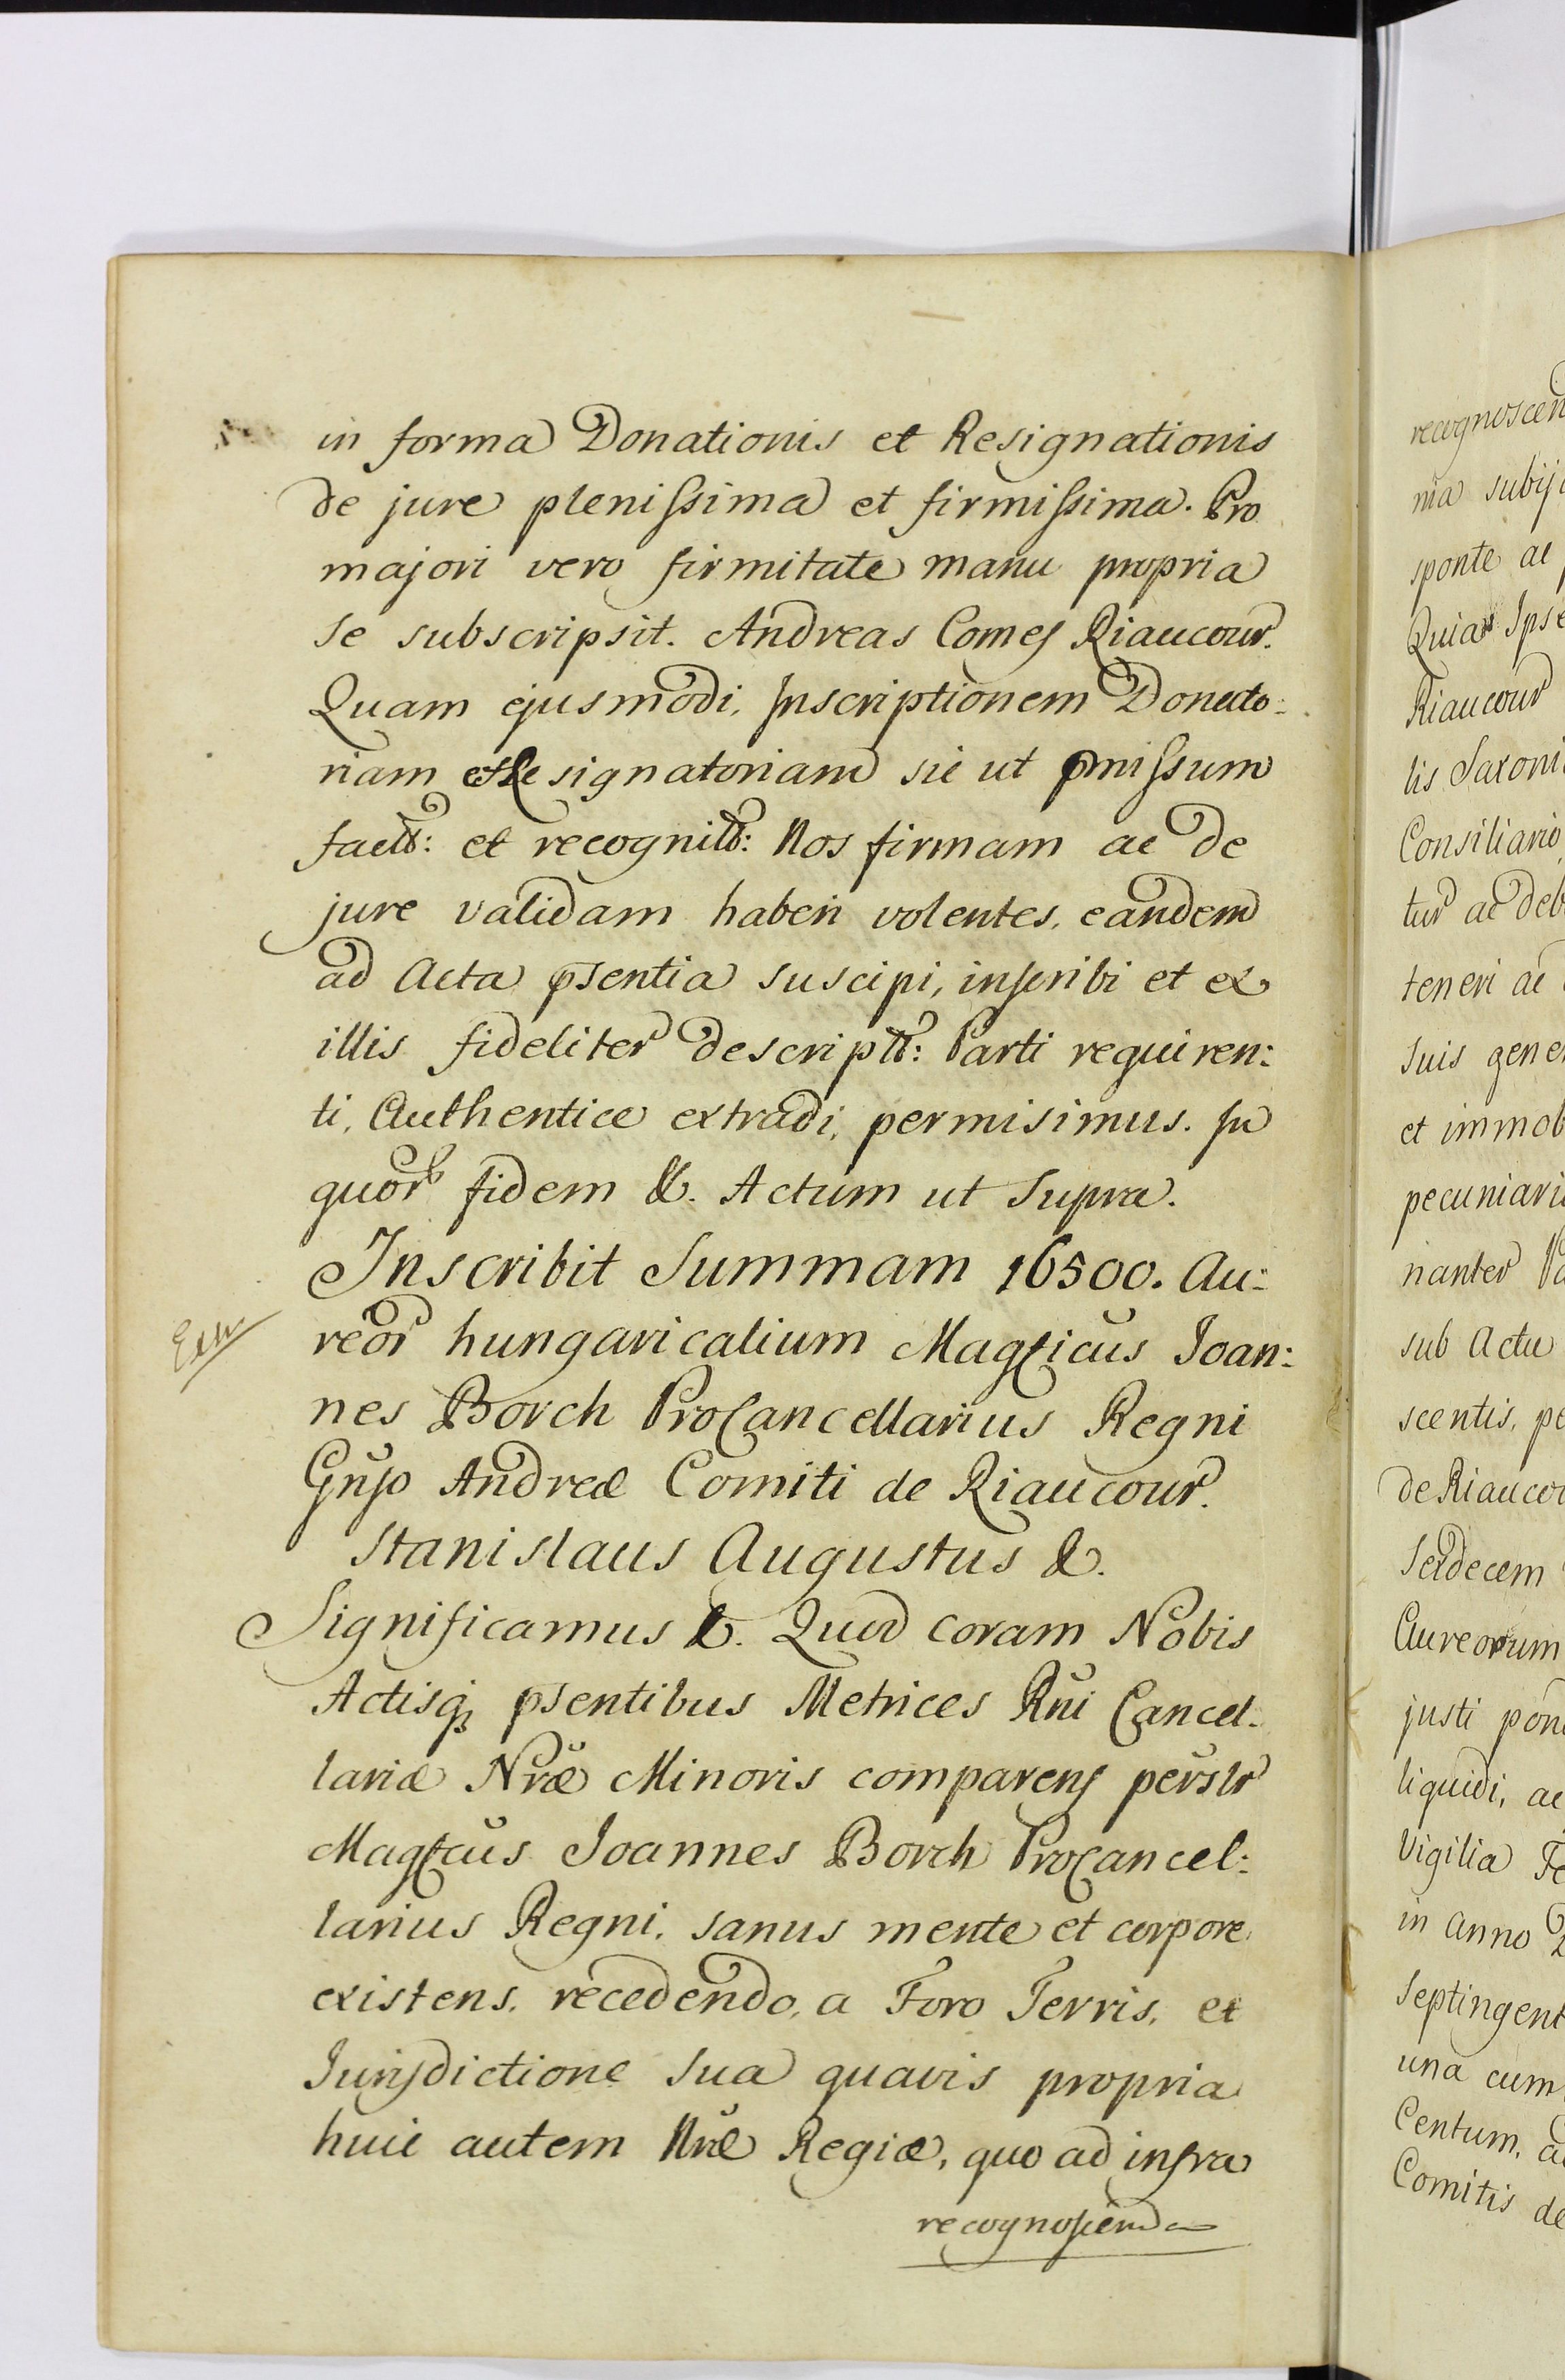 in forma Donationis et Resignationis
de jure plenissima et firmissima. Pro
majori vero firmitate manu propria
se subscripsit. Andreas Comes Riaucour.
Quam ejusmodi, Inscriptionem Donato:
riam et Resignatoriam sic ut pmissum
factt: et recognitt: Nos firmam ac de
jure validam haberi volentes, eandem
ad Acta psentia suscipi, inscribi et ex
illis fideliter descriptt: Parti requiren:
ti, Authentice extradi, permisimus. In
quor fidem &. Actum ut Supra.
Inscribit Summam 16500. Au:
Exw
reor hungaricalium Magficus Joan:
nes Borch ProCancellarius Regni
Gnso Andreæ Comiti de Riaucour.
Stanislaus Augustus &.
Significamus &. Quod coram Nobis
Actisq psentibus Metrices Rni Cancel:
lariæ Nræ Minoris comparens perslr
Magfcus Joannes Borch ProCancel:
larius Regni, sanus mente et corpore
existens, recedendo, a Foro Terris, et
Jurisdictione sua quavis propria
huic autem Nræ Regiæ, quo ad infra
recognoscenda
recognoscen
ma subij
sponte ac
Quia Ipse
Riaucour
lis Saxoni
Consiliario
tur ac deb
teneri ac
suis gene
et immob
pecuniari
nanter
sub Actu
scentis, pe
de Riaucou
Sexdecem
Aureorum
justi pon
liquidi, ac
Vigilia Fe
in Anno
Septingent
una cum
Centum, a
Comitis de